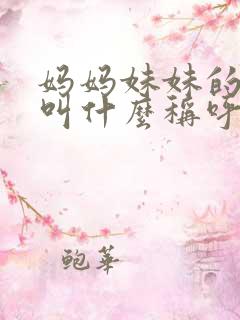 妈妈妹妹的
叫什麽稱呼
鲍華